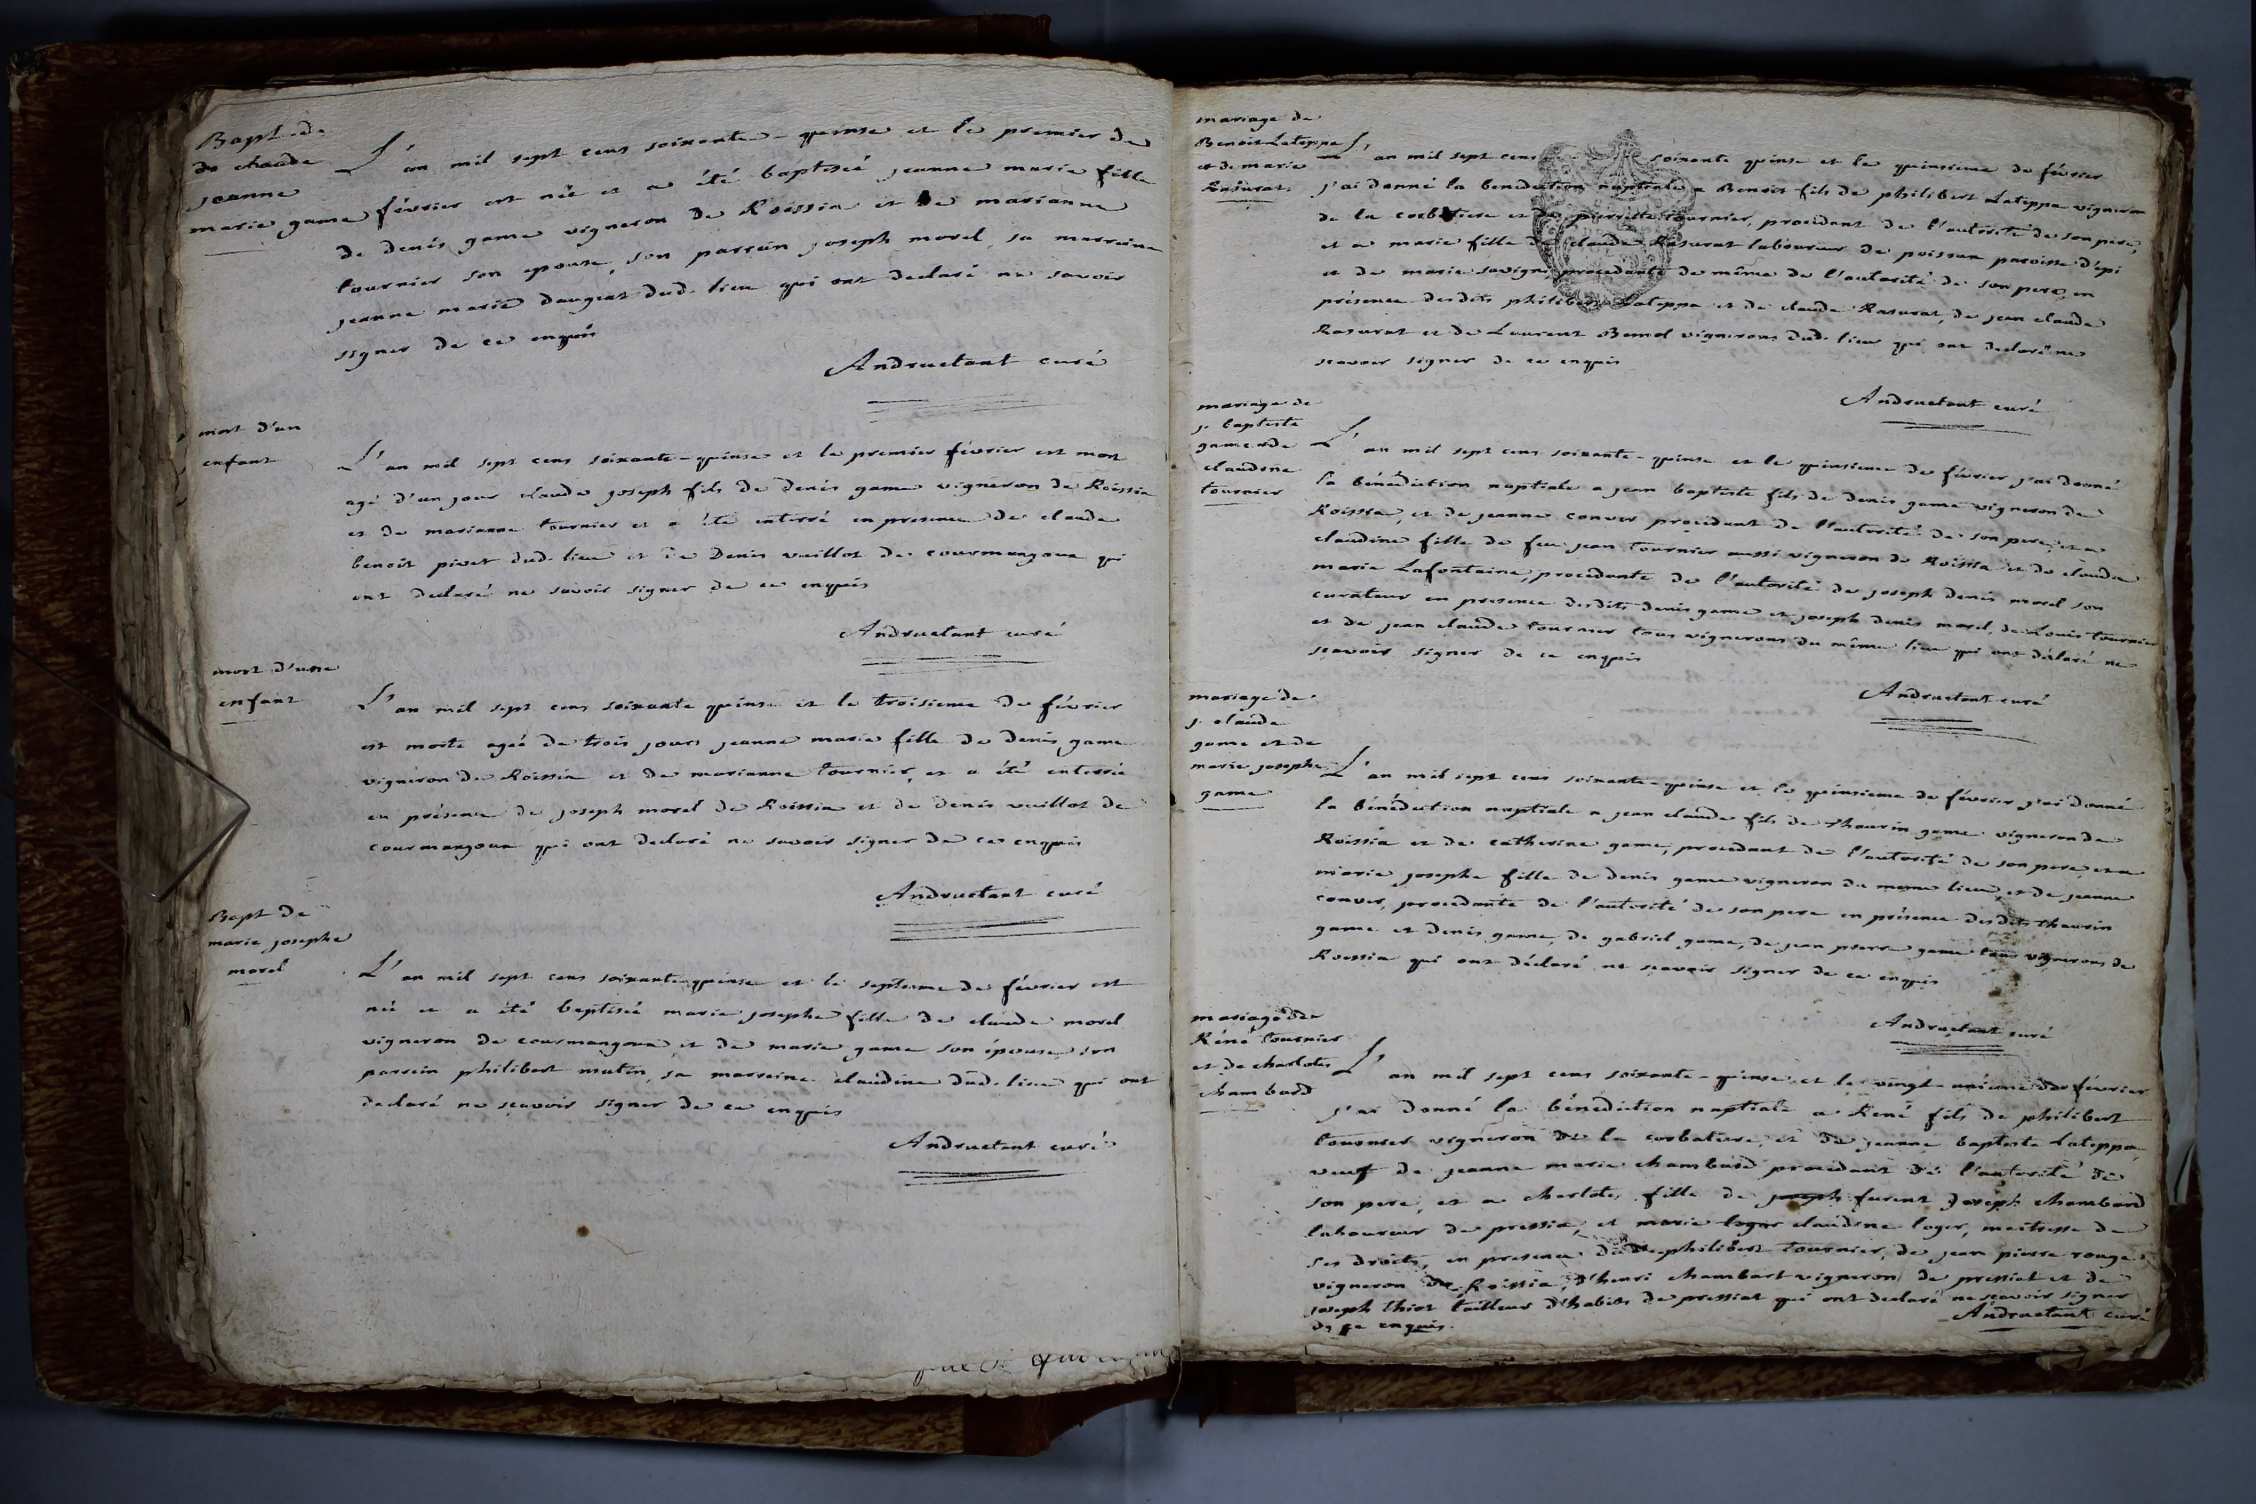 Bapt. de
de claude
jeanne
marie game
L'an mil sept cens soixante-quinse et le premier de
février est née et a été baptisée jeanne marie fille
de denis game vigneron de Roissia et de marianne
tournier son epouse, son parrain joseph morel, sa marraine
jeanne marie daugeat dud. lieu qui ont declaré ne savoir
signer de ce enquis
Andruetant curé
mort d'un
enfant
L'an mil sept cens soixante-quinse et le premier février est mort
agé d'un jour claude joseph fils de denis game vigneron de Roissia
et de marianne tournier et a été enterré en presence de claude
benoit pivet dud. lieu et de Denis vuillot de courmangoux qui
ont declaré ne savoir signer de ce enquis
Andruetant curé
mort d'une
enfant
L'an mil sept cens soixante quinse et le troisieme de février
est morte ageé de trois jours jeanne marie fille de denis game
vigneron de Roissia et de marianne tournier, et a été enterrée
en présence de joseph morel de Roissia et de denis vuillot de
courmangoux qui ont declaré ne savoir signer de ce enquis
Andruetant curé
Bapt de
marie josephe
morel
L'an mil sept cens soixante quinse et le septieme de février est
née et a été baptisée marie josephe fille de claude morel
vigneron de courmangoux et de marie game son épouse, son
parrein philibert mutin, sa marreine claudine dud. lieu qui ont
declaré ne sçavoir signer de ce enquis
Andruetant curé
mariage de
Benoit Lateppe
et de marie
Rasurat
L'an mil sept cens soixante quinse et le quinsieme de février
j'ai donné la benediction nuptiale a Benoit fils de philibert Lateppe vigneron
de la corbatiere et de pierrette tournier, procedant de l'autorité de son pere,
et a marie fille de claude Rasurat laboureur de poisoux paroisse d'epi
et de marie savigni procedante de même de l'autorité de son pere, en
présence desdits philibert Lateppe et de claude Rasurat, de jean claude
Rasurat et de Laurent Bernol vignerons dud. lieu qui ont declaré ne
scavoir signer de ce enquis
Andruetant curé
mariage de
j. baptiste
game et de
claudine
tournier
L'an mil sept cens soixante-quinse et le quinsieme de février j'ai donné
la bénédiction nuptiale a jean baptiste fils de denis game vigneron de
Roissia, et de jeanne conver procedant de l'autorité de son pere, et a
claudine fille de feu jean tournier aussi vigneron de Roissia et de claude
marie Lafontaine, procedante de l'autorité de joseph denis morel son
curateur en presence desdits denis game et joseph denis morel, de Louis tournier
et de jean claude tournier tous vignerons du même lieu qui ont déclaré ne
sçavoir signer de ce enquis
Andruetant curé
mariage de
j. claude
game et de
marie josephe
game
L'an mil sept cens soixante-quinse et le quinsieme de février j'ai donné
la bénédiction nuptiale a jean claude fils de thaurin game vigneron de
Roissia et de catherine game, procedant de l'autorité de son pere et a
marie josephe fille de denis game vigneron du meme lieu, et de jeanne
conver, procedante de l'autorité de son pere en présence desdits thaurin
game et denis game, de gabriel game, de jean pierre game tous vignerons de
Roissia qui ont déclaré ne sçavoir signer de ce enquis
Andruetant curé
mariage de
Réné tournier
et de charlote
chambard
L'an mil sept cens soixante-quinse et le vingt-unieme de février
j'ai donné la bénediction nuptiale a René fils de philibert
tournier vigneron de la corbatiere, et de jeanne baptiste Lateppe,
veuf de jeanne marie chambard procedant de l'autorité de
son pere, et a charlote fille de joseph furent Joseph chambard
laboureur de pressia, et marie loger claudine loger, maitresse de
ses droits, en presence de philibert tournier, de jean pierre rouge
vigneron de Roissia, d'henri chambart vigneron de pressiat et de
joseph thiot tailleur d'habits de pressiat qui ont declaré ne sçavoir signer
de ce enquis.
Andruetant curé